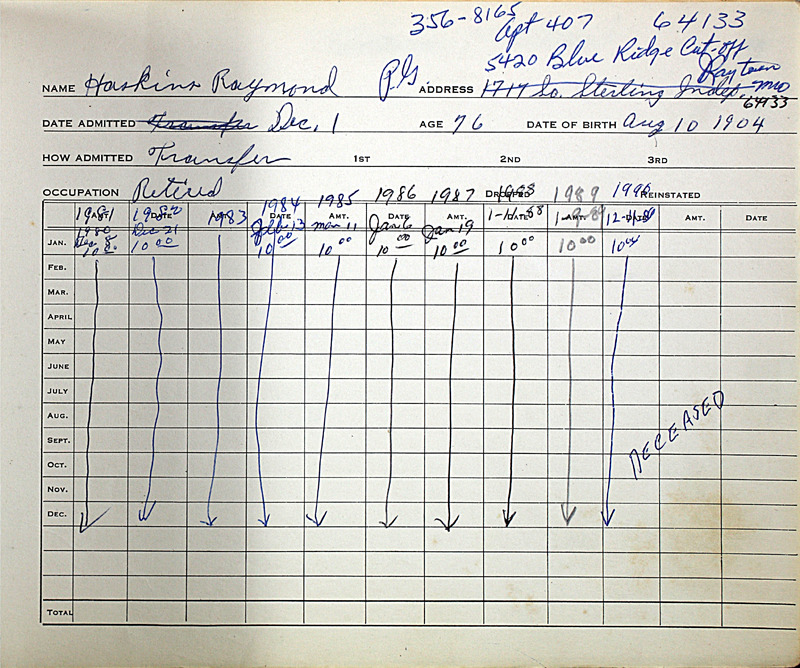 356-8165 Apt 407 64133
5420 Blue Ridge Cut-off
Raytown
NAME Haskins Raymond P.G. ADDRESS 1717 So. Sterling Indep. Mo
64133
DATE ADMITTED Transfer Dec. 1 AGE 76 DATE OF BIRTH Aug 10 1904
HOW ADMITTED Transfer 1ST 2ND 3RD
OCCUPATION Retired DROPPED REINSTATED
1981 1983 1984 1985 1986 1987 1988 1989 1990
AMT. DATE AMT. DATE AMT. DATE AMT. DATE AMT. DATE AMT. DATE
1980 Dec 21 Feb 13 Mar 11 Jan 6 Jan 19
JAN. Dec 8 10 00 10 00 10 00 10 00 10 00 10 00 10 00
FEB.
MAR.
APRIL
MAY
JUNE
JULY
AUG.
SEPT.
OCT.
NOV.
DEC.
DECEASED
TOTAL